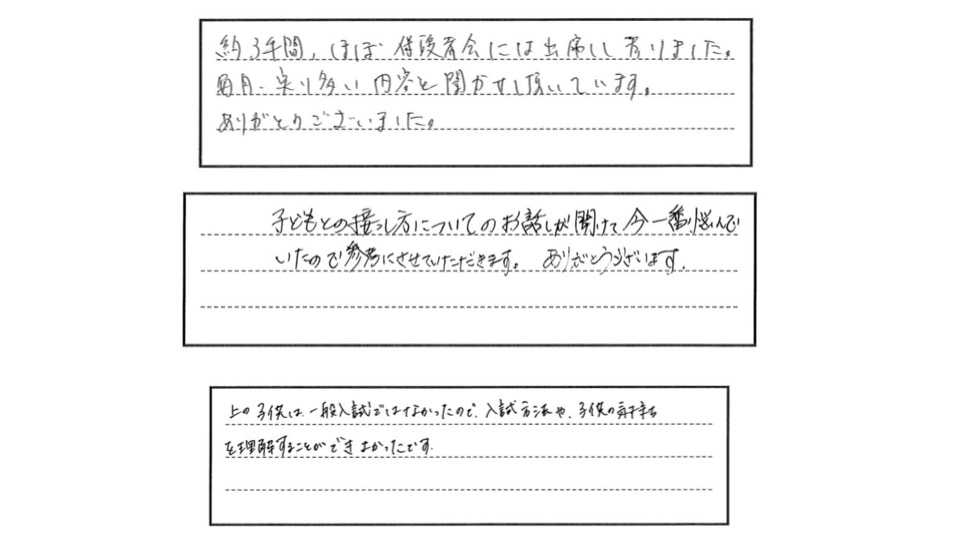 約3年間、ほぼ保護者会には出席して有りました。
毎月、実り多い内容を聞かせて頂いています。
ありがとうございました。
子どもとの接し方についてのお話しが聞けて今一番悩んで
いたので参考にさせていただきます。 ありがとうございます。
上の子供は、一般入試ではなかったので、入試方法や、子供の
を理解することができよかったです。